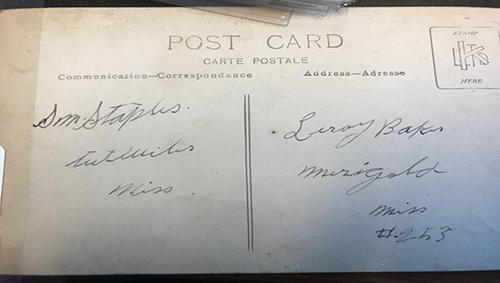 POST CARD
CARTE POSTALE
Communication—Correspondance
Address—Adresse
STAMP
HERE
Sm. Staples.
Tutwiler
Miss.
Leroy Baker
Merigold
Miss
#253